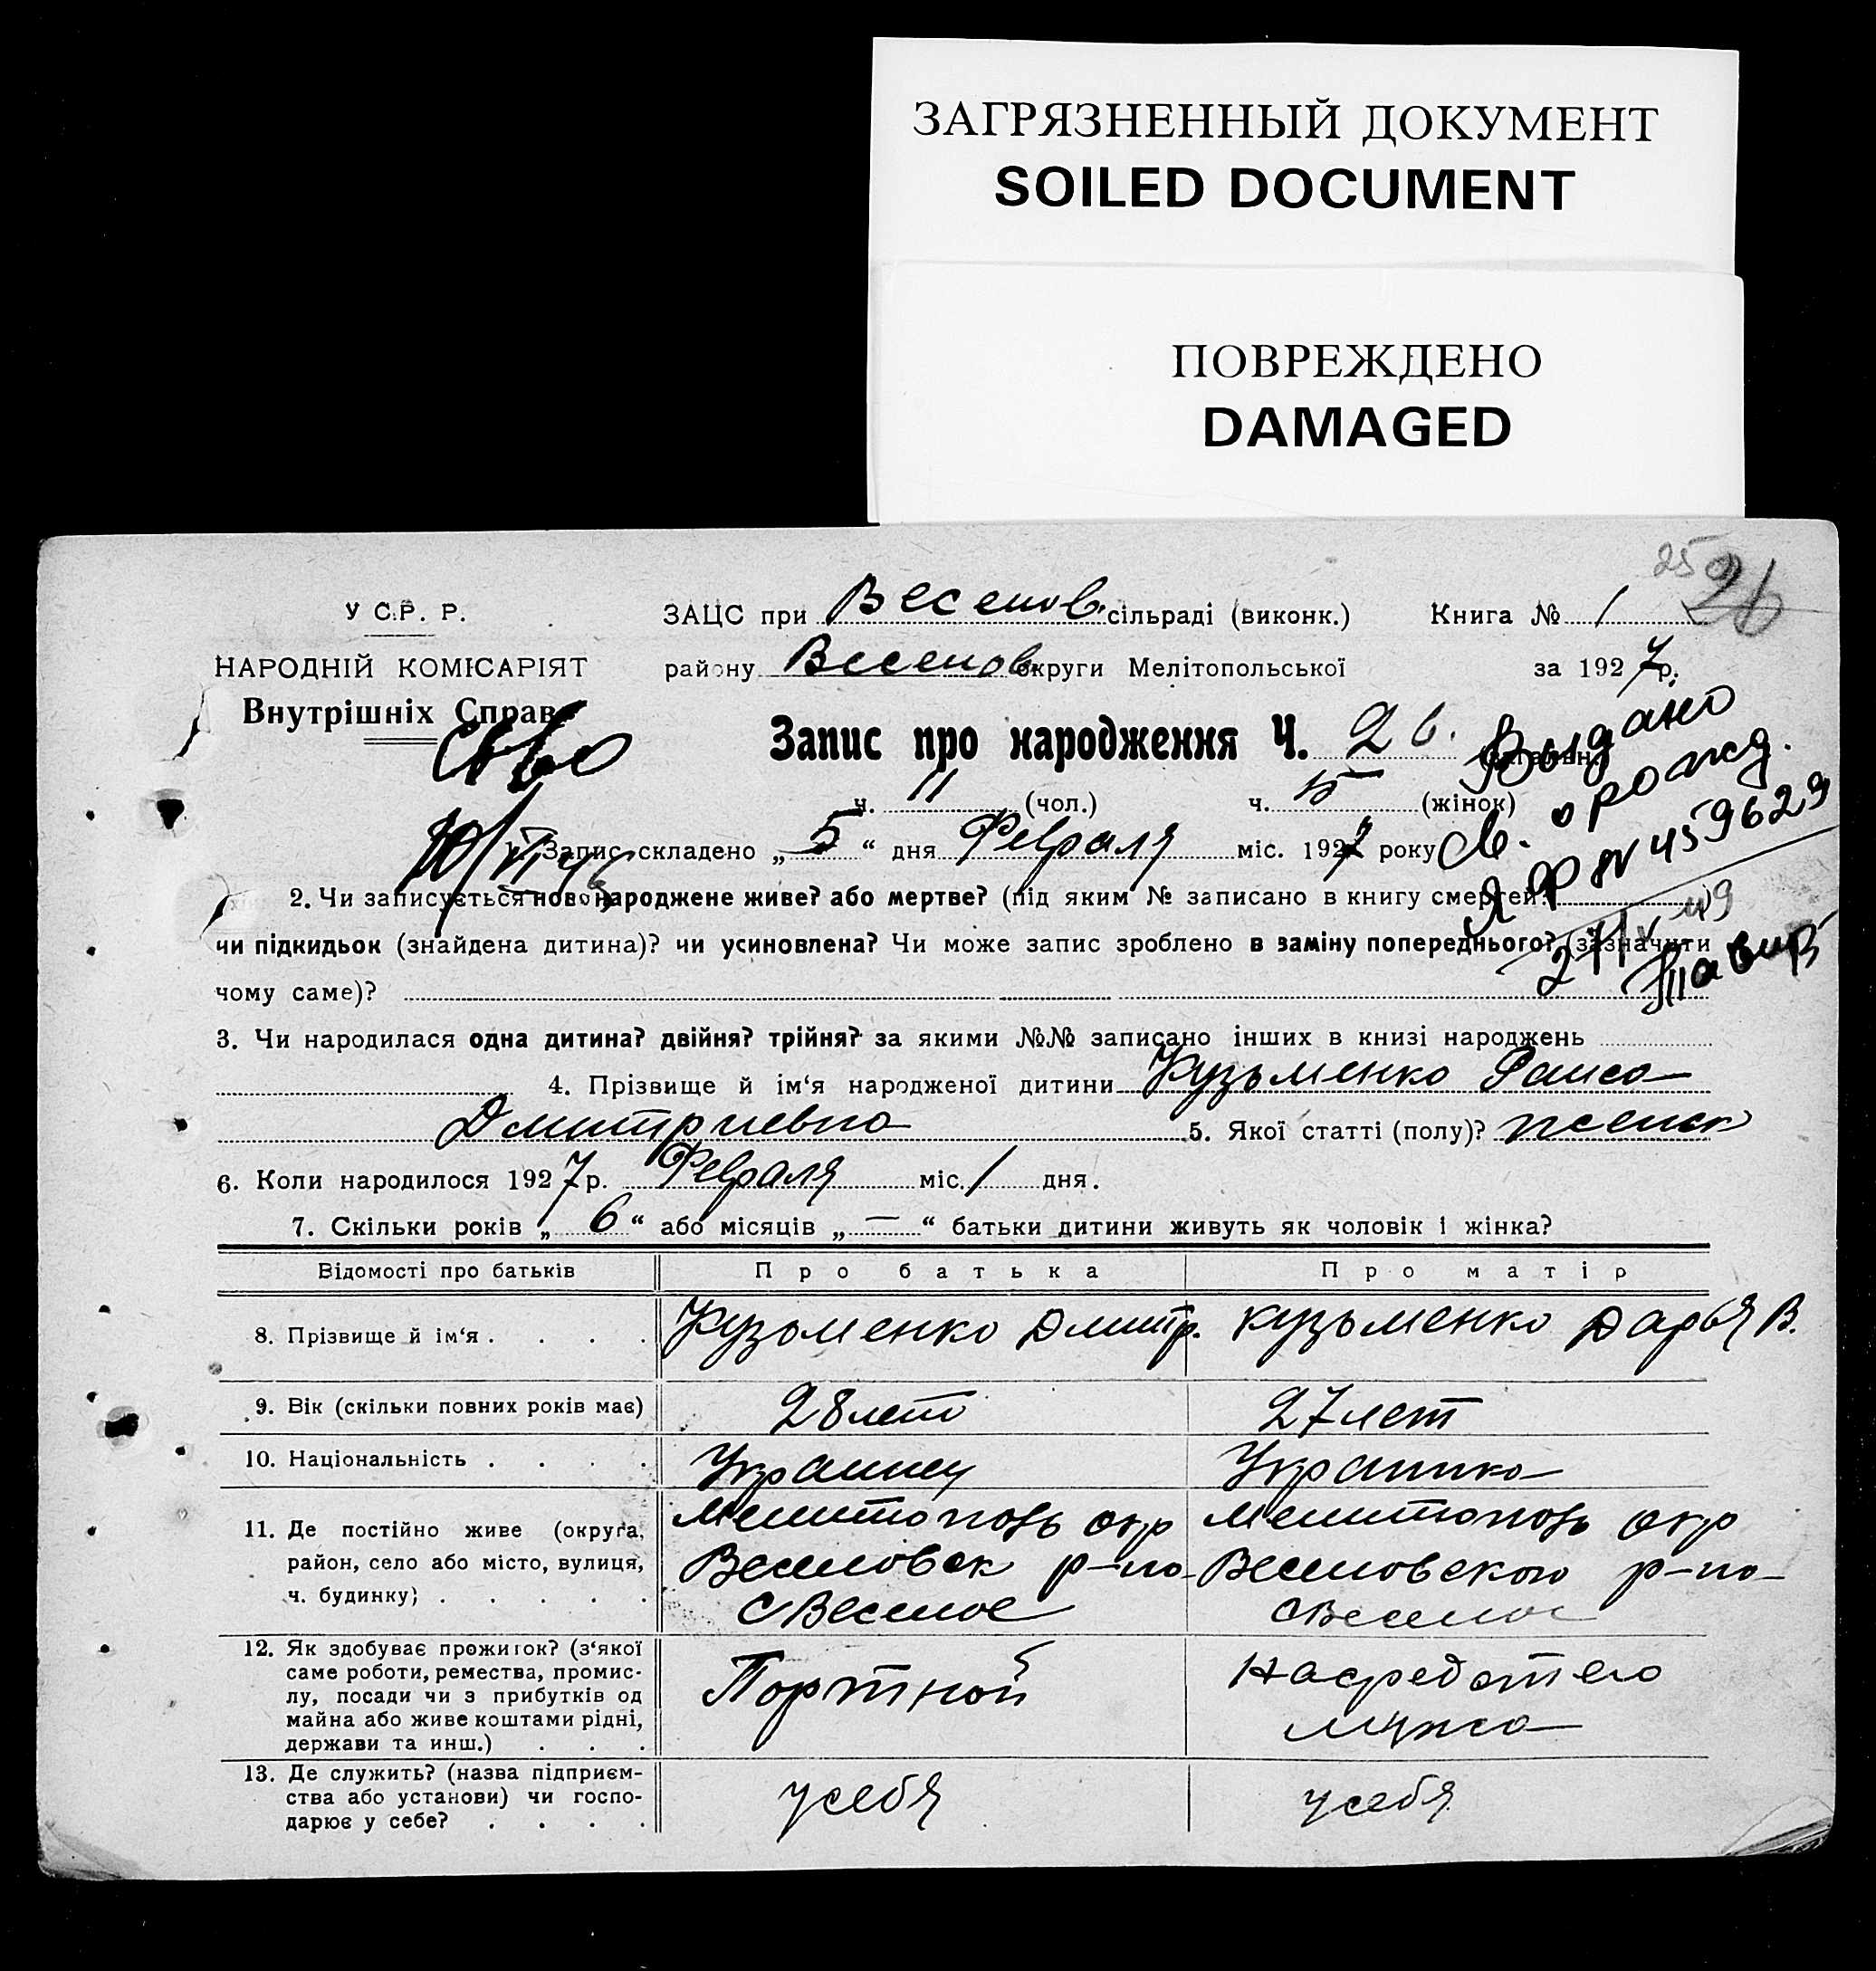 ЗАГРЯЗНЕННЫЙ ДОКУМЕНТ
SOILED DOCUMENT
ПОВРЕЖДЕНО
DAMAGED
25 26
У С.Р. Р.
ЗАЦС при Веселов. сільраді (виконк.) Книга № 1
НАРОДНІЙ КОМІСАРІЯТ
району Веселов округи Мелітопольської за 1927 р.
Внутрішніх Справ
Запис про народження Ч. 26.
Выдано
ч. 11 (чол.) ч. 5 (жінок)
св. о рожд.
1. Запис складено „ 5 “ дня Февраля міс. 1927 року
№ 459629
2. Чи записується новонароджене живе? або мертве? (під яким № записано в книгу смертей?)
чи підкидьок (знайдена дитина)? чи усиновлена? Чи може запис зроблено в заміну попереднього? (зазначити
чому саме)?
3. Чи народилася одна дитина? двійня? трійня? за якими №№ записано інших в книзі народжень
4. Прізвище й ім‘я народженої дитини Кузьменко Раиса
Дмитриевна 5. Якої статті (полу)? женск
6. Коли народилося 1927 р. Февраля міс. 1 дня.
7. Скільки років „ 6 “ або місяців „ — “ батьки дитини живуть як чоловік і жінка?
Відомості про батьків Про батька Про матір
8. Прізвище й ім‘я . . . . Кузьменко Дмитр. Кузьменко Дарья В.
9. Вік (скільки повних років має) 28 лет 27 лет
10. Національність . . . . Украинец Украинка
11. Де постійно живе (округа, Мелитополь окр Мелитополь окр
район, село або місто, вулиця, Веселовск р-на Веселовского р-на
ч. будинку) . . . . . с Веселое с Веселое
12. Як здобуває прожиток? (з‘якої
саме роботи, ремества, промис-
лу, посади чи з прибутків од Портной На средст его
майна або живе коштами рідні, мужа
держави та инш.) . . .
13. Де служить? (назва підприєм-
ства або установи) чи госпо- у себя у себя
дарює у себе? . . . .